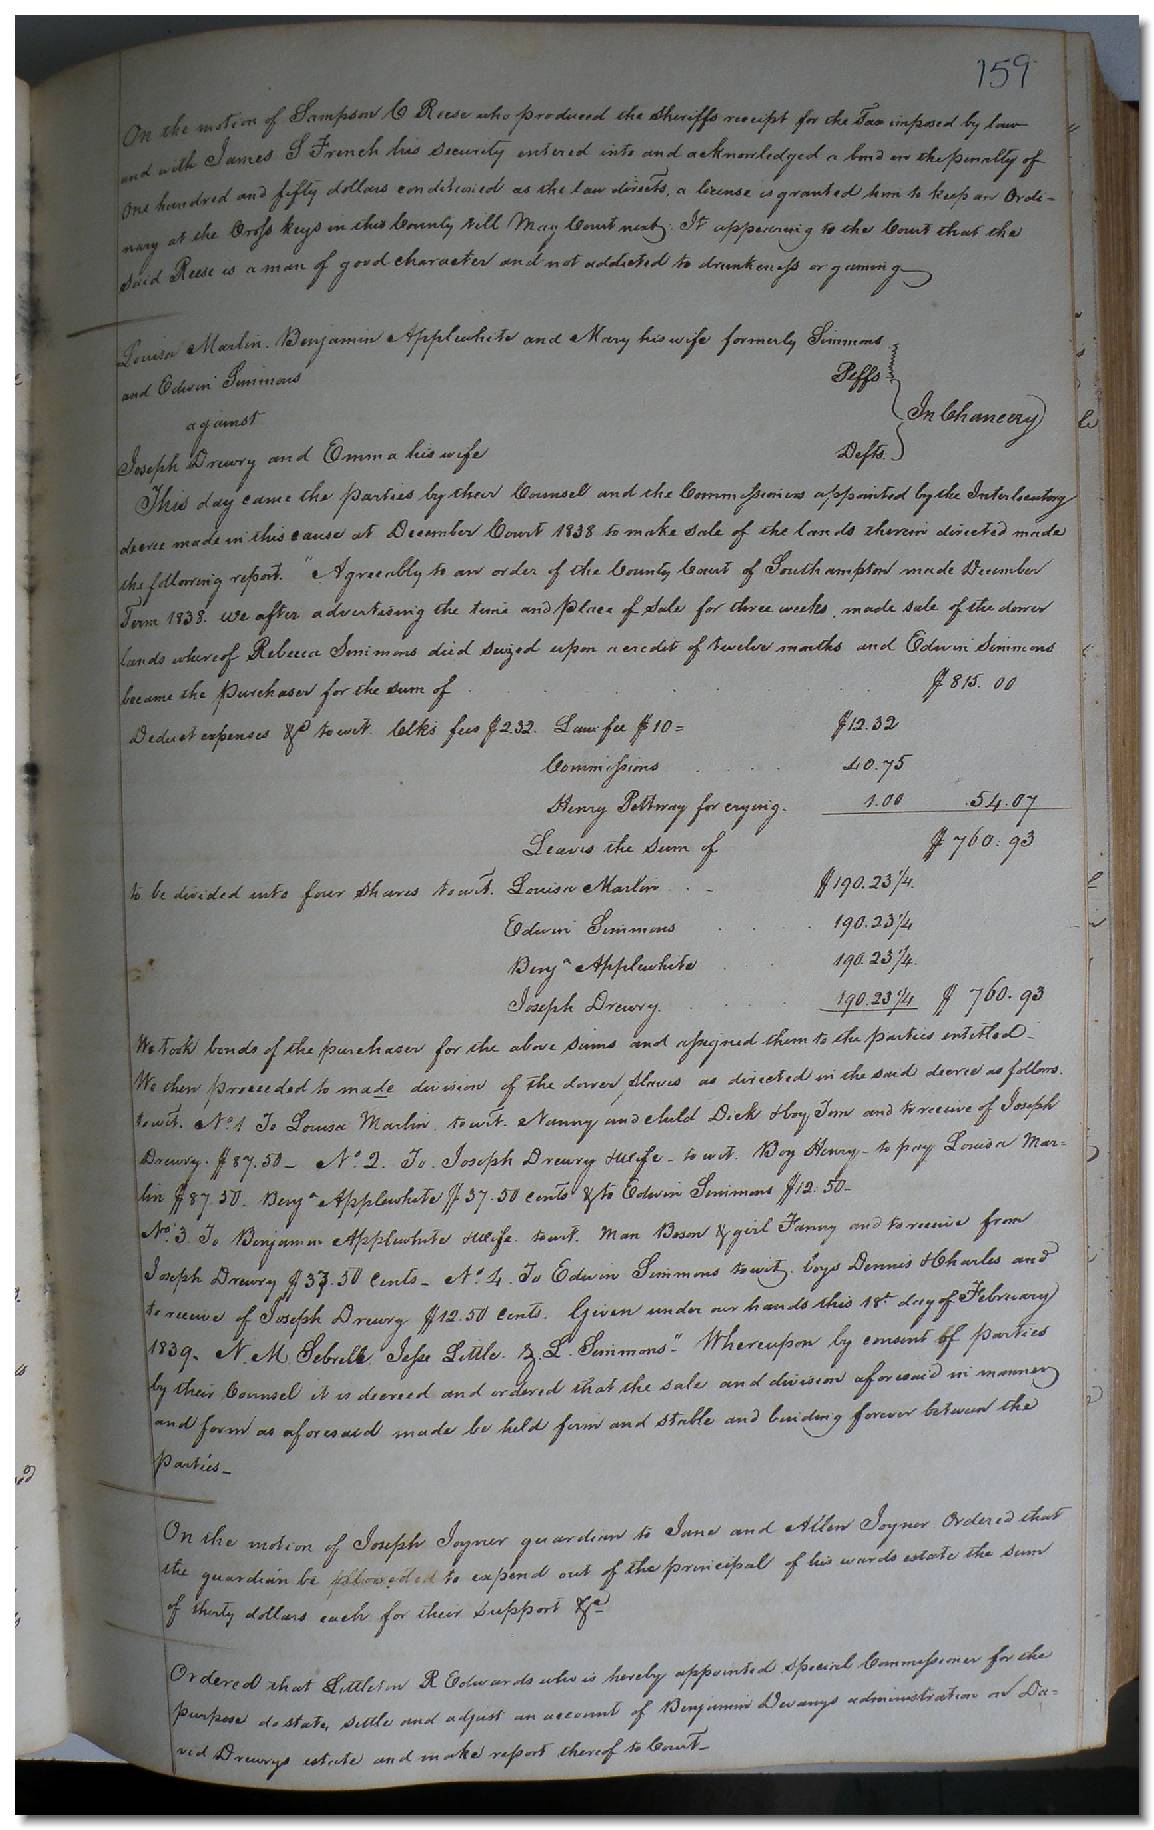 159
On the motion of Sampson C Reese who produced the Sheriffs receipt for the Tax imposed by law
and with James S French his security entered into and acknowledged a bond in the penalty of
One hundred and fifty dollars conditioned as the law directs, a license is granted him to keep an Ordi-
nary at the Cross keys in this County till May Court next. It appearing to the Court that the
said Reese is a man of good character and not addicted to drunkenness or gaming
Louisa Marlin. Benjamin Applewhite and Mary his wife formerly Simmons
and Edwin Simmons Peffs
against In Chancery
Joseph Drewry and Emma his wife Defts.
This day came the parties by their Counsel and the Commissioners appointed by the Interlocutory
decree made in this cause at December Court 1838 to make sale of the lands therein directed made
the following report. "Agreeably to an order of the County Court of Southampton made December
Term 1838. We after advertising the time and place of sale for three weeks, made sale of the dower
lands whereof Rebecca Simmons died seized upon a credit of twelve months and Edwin Simmons
became the purchaser for the sum of $815.00
Deduct expenses &c to wit. Clks fees $2.32. Law fee $10= $12.32
Commissions 40.75
Henry Pettway for crying. 1.00 54.07
Leaves the sum of $760.93
to be divided into four shares to wit. Louisa Marlin $190.23¼
Edwin Simmons 190.23¼
Benja Applewhite 190.23¼
Joseph Drewry. 190.23¼ $760.93
We took bonds of the purchaser for the above sums and assigned them to the parties entitled-
We then proceeded to made division of the dower slaves as directed in the said decree as follows.
to wit. No. 1 To Louisa Marlin, to wit. Nanny and child Dick & boy Tom and to receive of Joseph
Drewry. $87.50- No. 2. To Joseph Drewry & wife- to wit. Boy Henry- to pay Louisa Mar-
lin $87.50. Benja Applewhite $37.50 cents & to Edwin Simmons $12.50-
No. 3. To Benjamin Applewhite & wife. to wit. Man Boson & girl Fanny and to receive from
Joseph Drewry $37.50 cents- No. 4. To Edwin Simmons to wit. boys Dennis & Charles and
to receive of Joseph Drewry $12.50 cents. Given under our hands this 18t day of February
1839- N. M. Sebrell. Jesse Little. & L. Simmons." Whereupon by consent of parties
by their Counsel it is decreed and ordered that the sale and division aforesaid in manner
and form as aforesaid made be held firm and stable and binding forever between the
Parties-
On the motion of Joseph Joyner guardian to Jane and Allen Joyner Ordered that
the guardian be to expend out of the principal of his wards estate the sum
of thirty dollars each for their support &c
Ordered that Littleton R Edwards who is hereby appointed special Commissioner for the
purpose do state, settle and adjust an account of Benjamin Devanys administration on Da-
vid Drewrys estate and make report thereof to Court-